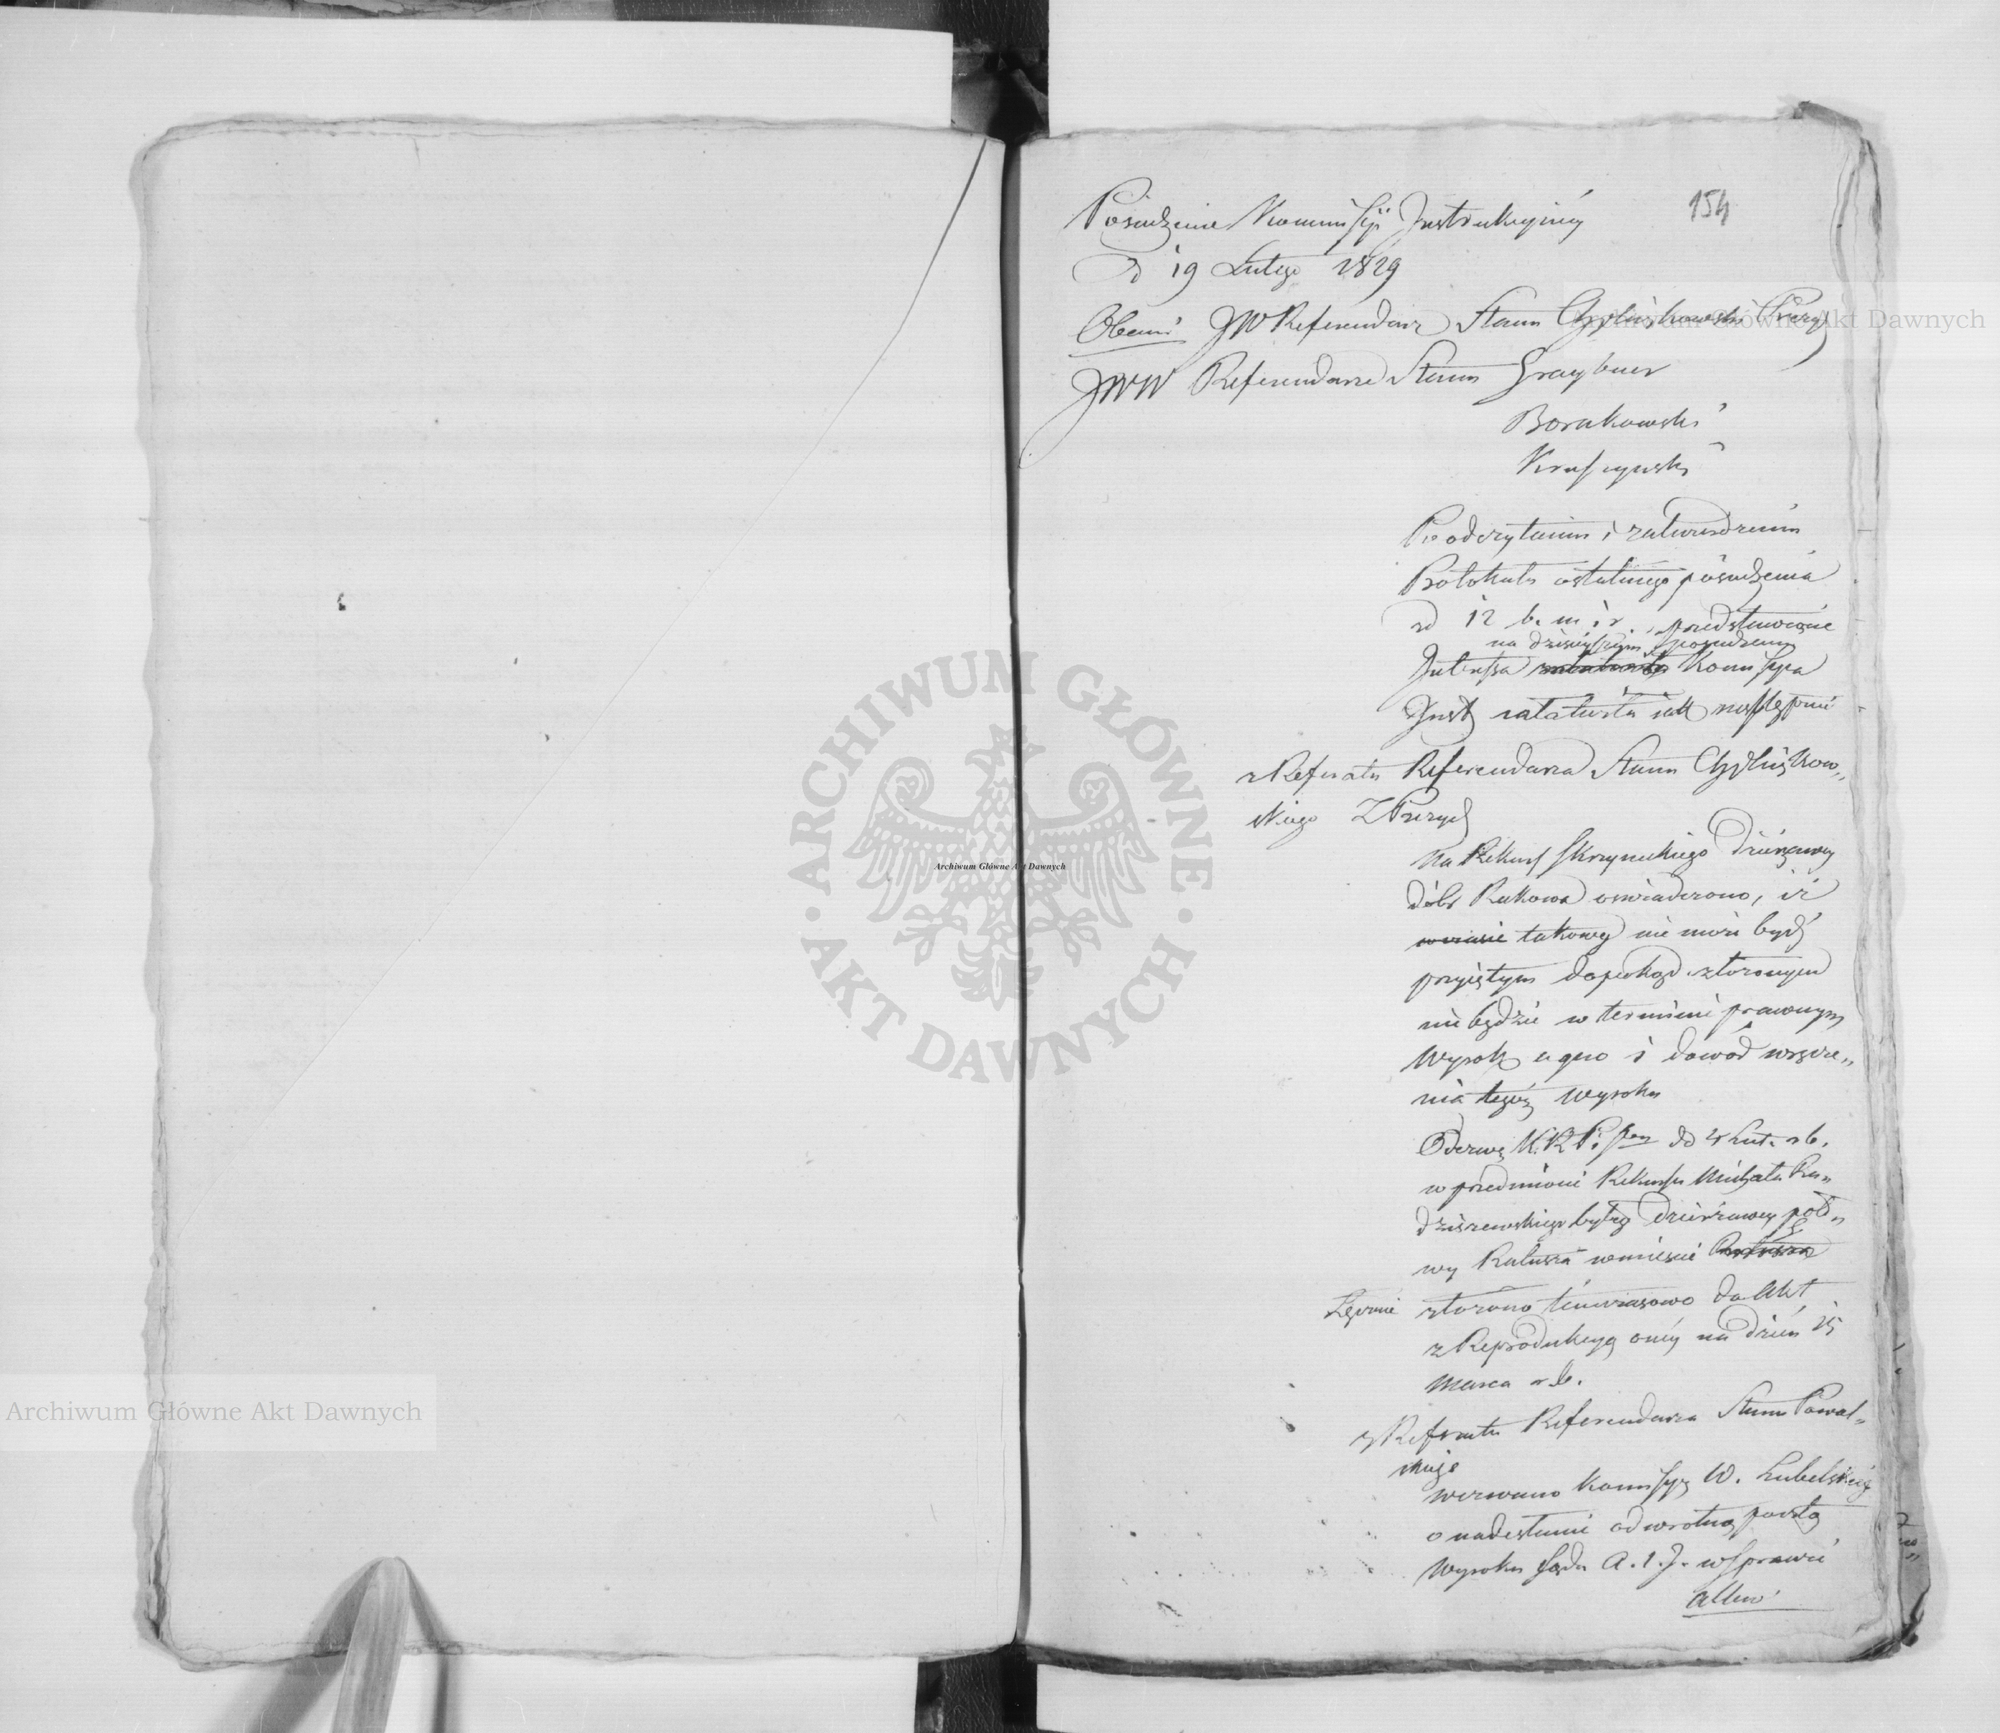 154
Posiedzenie Kommissyi Instrukcyiney
d 19 Lutego 1829
Obecni JW Referendarz Stanu Chyliczkowski Prezyd
JWW Referendarze Stanu Graybner
Borakowski
Kruszyński
Po odczytaniu i zatwierdzeniu
Protokułu ostatniego posiedzenia
z d 12 b. m. i r., przedstawione
na dzisieyszym posiedzeniu
Interessa Kommissya
Inst załatwiła iak następuie
z Referatu Referendarza Stanu Chyliczkow„
skiego Z Prezyd
Na Rekurs Skrzyneckiego Dzierżawcy
dóbr Rakowa oświadczono, iż
takowy nie może bydź
przyiętym dopokąd złożonym
nie będzie w terminie prawnym
Wyrok a quo i dowód wręcze„
nia tegoż Wyroku
Odezwę K. R. P. i Sk d 4 Lut. r b.
w przedmiocie Rekursu Michała Ra„
dziszewskiego byłego Dzierżawcy poło„
wy Ratusza w mieście
Łęcznie złożono tymczasowo do Akt
z Reprodukcyą oney na dzień 15
Marca r b.
z Referatu Referendarza Stanu Powal„
skiego
wezwano Kommissyą W. Lubelskiego
o nadesłanie odwrotną pocztą
Wyroku Sądu A. I. J. w sprawie
Archiwum Główne Akt Dawnych
Archiwum Główne Akt Dawnych
Archiwum Główne Akt Dawnych
ARCHIWUM GŁÓWNE
· AKT DAWNYCH ·